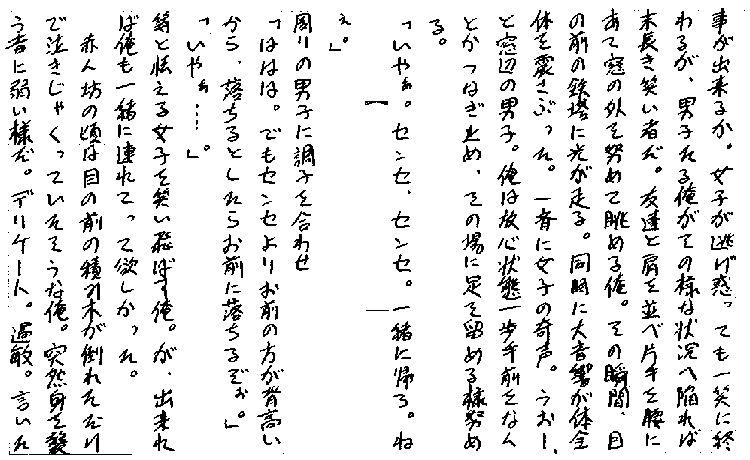 事が出来るか。女子が逃げ惑っても一笑に終
わるが、男子たる俺がその様な状況へ陥れば
末長き笑い者だ。友達と肩を並べ片手を腰に
あて窓の外を努めて眺める俺。その瞬間、目
の前の鉄塔に光が走る。同時に大音響が体全
体を震さぶった。一斉に女子の奇声。うおー、
と窓辺の男子。俺は放心状態一歩手前をなん
とかつなぎ止め、その場に足を留める様努め
る。
「いやぁ。センセ、センセ。一緒に帰ろ。ね
ぇ。」
周りの男子に調子を合わせ
「ははは。でもセンセよりお前の方が背高い
から、落ちるとしたらお前に落ちるぞぉ。」
「いやぁ……」。
等と怯える女子を笑い飛ばす俺。が、出来れ
ば俺も一緒に連れてって欲しかった。
赤ん坊の頃は目の前の積み木が倒れただけ
で泣きじゃくっていたそうな俺。突然身を襲
う音に弱い様だ。デリケート。過敏。言いた